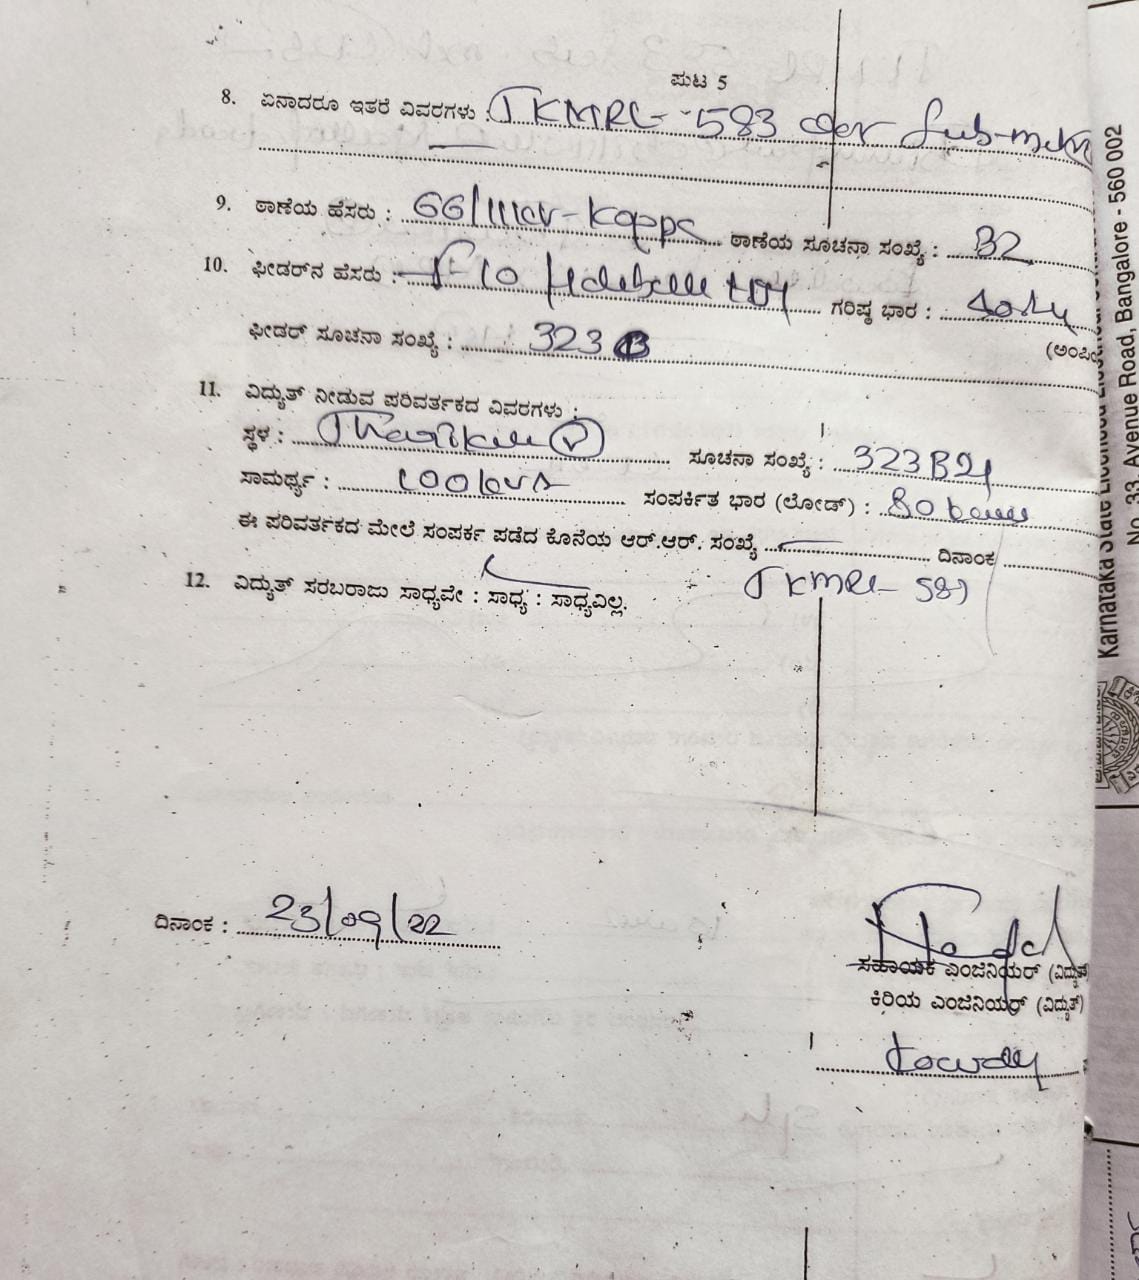 ಪುಟ 5
8. ಏನಾದರೂ ಇತರೆ ವಿವರಗಳು : TKMRL- 583 Sub-meter
9. ಠಾಣೆಯ ಹೆಸರು : 66/11kv- Kappa ಠಾಣೆಯ ಸೂಚನಾ ಸಂಖ್ಯೆ : B2
10. ಫೀಡರ್‌ನ ಹೆಸರು : F10 ಗರಿಷ್ಠ ಭಾರ :
(ಅಂಪಿ
ಫೀಡರ್ ಸೂಚನಾ ಸಂಖ್ಯೆ : 323 B
11. ವಿದ್ಯುತ್ ನೀಡುವ ಪರಿವರ್ತಕದ ವಿವರಗಳು :
ಸ್ಥಳ : (V) ಸೂಚನಾ ಸಂಖ್ಯೆ : 323B21
ಸಾಮರ್ಥ್ಯ : 100kva ಸಂಪರ್ಕಿತ ಭಾರ (ಲೋಡ್) : 80
ಈ ಪರಿವರ್ತಕದ ಮೇಲೆ ಸಂಪರ್ಕ ಪಡೆದ ಕೊನೆಯ ಆರ್.ಆರ್. ಸಂಖ್ಯೆ ದಿನಾಂಕ
TKMRL- 581
12. ವಿದ್ಯುತ್ ಸರಬರಾಜು ಸಾಧ್ಯವೇ : ಸಾಧ್ಯ : ಸಾಧ್ಯವಿಲ್ಲ.
ದಿನಾಂಕ : 23/09/22
ಸಹಾಯಕ ಎಂಜಿನಿಯರ್ (ವಿದ್ಯುತ್
ಕಿರಿಯ ಎಂಜಿನಿಯರ್ (ವಿದ್ಯುತ್)
Karnataka State Licensed Electrical
No. 33, Avenue Road, Bangalore - 560 002